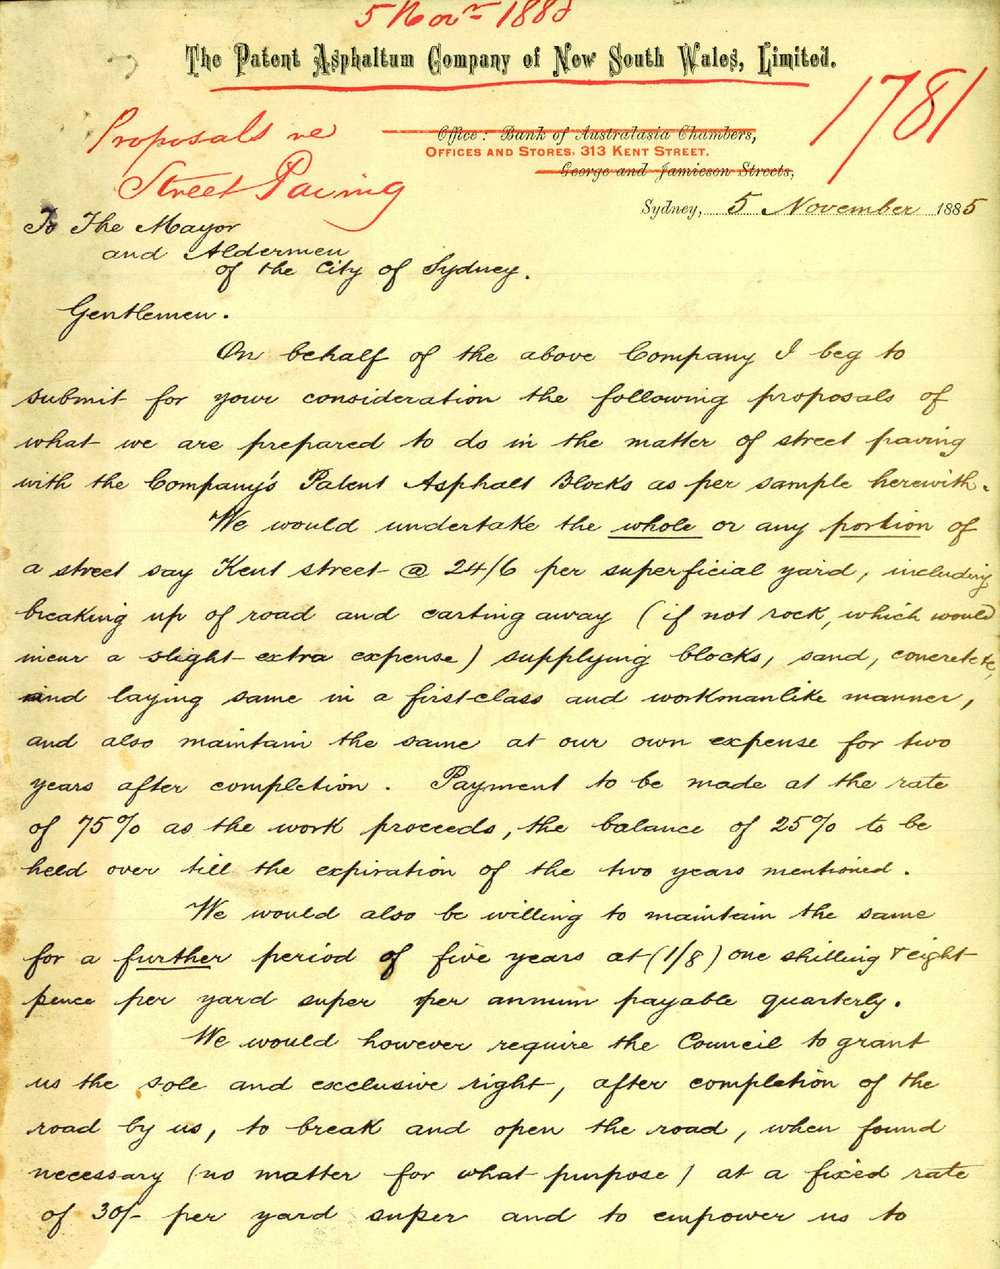 5 Novr 1885
The Patent Asphaltum Company of New South Wales, Limited.
1781
Proposals re
Street Paving
Office: Bank of Australasia Chambers,
OFFICES AND STORES, 313 KENT STREET.
George and Jamieson Streets,
Sydney, 5 November 1885
To The Mayor
and Aldermen
of the City of Sydney.
Gentlemen.
On behalf of the above Company I beg to
submit for your consideration the following proposals of
what we are prepared to do in the matter of street paving
with the Company's Patent Asphalt Blocks as per sample herewith.
We would undertake the whole or any portion of
a street say Kent street @ 24/6 per superficial yard, including
breaking up of road and carting away (if not rock, which would
incur a slight extra expense) supplying blocks, sand, concrete,
and laying same in a first class and workmanlike manner,
and also maintain the same at our own expense for two
years after completion. Payment to be made at the rate
of 75% as the work proceeds, the balance of 25% to be
held over till the expiration of the two years mentioned.
We would also be willing to maintain the same
for a further period of five years at (1/8) one shilling & eight
pence per yard super per annum payable quarterly.
We would however require the Council to grant
us the sole and exclusive right, after completion of the
road by us, to break and open the road, when found
necessary (no matter for what purpose) at a fixed rate
of 30/- per yard super and to empower us to